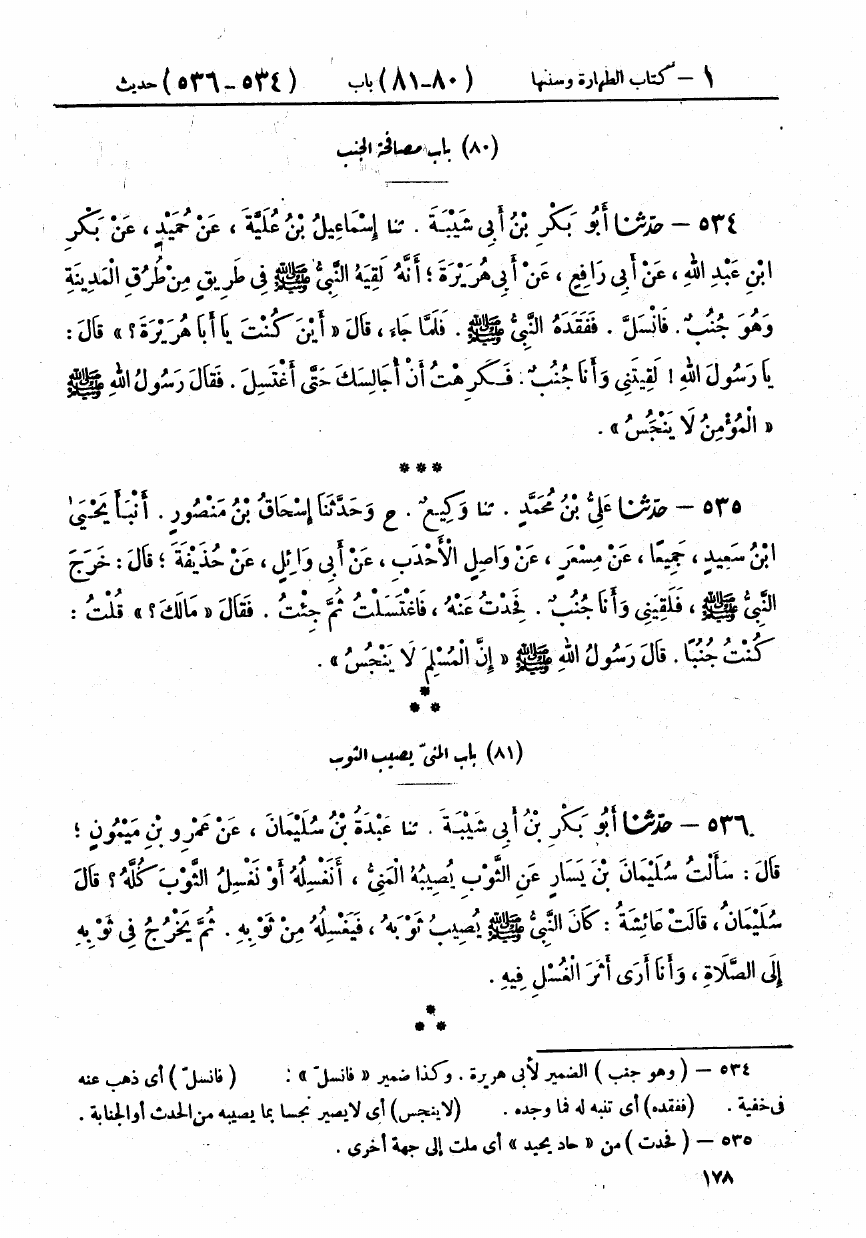 ١ – كتاب الطهارة وسننها (٨٠-٨١) باب (٥٣٤-٥٣٦) حديث
(٨٠) باب مصافحة الجنب
٥٣٤ – حَدّثنا أَبُو بَكْرِ بْنُ أَبِى شَيْبَةَ . ثنا إِسْمَاعِيلُ بْنُ عُلَيَّةَ ، عَنْ حُمَيْدٍ ، عَنْ بَكْرِ
ابْنِ عَبْدِ اللهِ ، عَنْ أَبِى رَافِعٍ ، عَنْ أَبِى هُرَيْرَةَ ؛ أَنَّهُ لَقِيَهُ النَّبِىُّ ﷺ فِى طَرِيقٍ مِنْ طُرُقِ الْمَدِينَةِ
وَهُوَ جُنُبٌ . فَانْسَلَّ . فَفَقَدَهُ النَّبِىُّ ﷺ . فَلَمَّا جَاءَ ، قَالَ « أَيْنَ كُنْتَ يَا أَبَا هُرَيْرَةَ ؟ » قَالَ :
يَا رَسُولَ اللهِ ! لَقِيتَنِى وَأَنَا جُنُبٌ . فَكَرِهْتُ أَنْ أُجَالِسَكَ حَتَّى أَغْتَسِلَ . فَقَالَ رَسُولُ اللهِ ﷺ
« الْمُؤْمِنُ لَا يَنْجُسُ » .
***
٥٣٥ – حَدّثنا عَلِىُّ بْنُ مُحَمَّدٍ . ثنا وَكِيعٌ . ح وَحَدَّثَنَا إِسْحَاقُ بْنُ مَنْصُورٍ . أَنْبَأَ يَحْيَىٰ
ابْنُ سَعِيدٍ ، جَمِيعًا ، عَنْ مِسْعَرٍ ، عَنْ وَاصِلٍ الْأَحْدَبِ ، عَنْ أَبِى وَائِلٍ ، عَنْ حُذَيْفَةَ ؛ قَالَ : خَرَجَ
النَّبِىُّ ﷺ ، فَلَقِيَنِى وَأَنَا جُنُبٌ . فَحِدْتُ عَنْهُ ، فَاغْتَسَلْتُ ثُمَّ جِئْتُ . فَقَالَ « مَالَكَ ؟ » قُلْتُ :
كُنْتُ جُنُبًا . قَالَ رَسُولُ اللهِ ﷺ « إِنَّ الْمُسْلِمَ لَا يَنْجُسُ » .
*
* *
(٨١) باب المنىّ يصيب الثوب
٥٣٦ – حَدّثنا أَبُو بَكْرِ بْنُ أَبِى شَيْبَةَ . ثنا عَبْدَةُ بْنُ سُلَيْمَانَ ، عَنْ عَمْرِو بْنِ مَيْمُونٍ ؛
قَالَ : سَأَلْتُ سُلَيْمَانَ بْنَ يَسَارٍ عَنِ الثَّوْبِ يُصِيبُهُ الْمَنِىُّ ، أَنَغْسِلُهُ أَوْ نَغْسِلُ الثَّوْبَ كُلَّهُ ؟ قَالَ
سُلَيْمَانُ ، قَالَتْ عَائِشَةُ : كَانَ النَّبِىُّ ﷺ يُصِيبُ ثَوْبَهُ ، فَيَغْسِلُهُ مِنْ ثَوْبِهِ . ثُمَّ يَخْرُجُ فِى ثَوْبِهِ
إِلَى الصَّلَاةِ ، وَأَنَا أَرَى أَثَرَ الْغُسْلِ فِيهِ .
*
* *
٥٣٤ – ( وهو جنب ) الضمير لأبى هريرة . وكذا ضمير « فانسلّ » : ( فانسلّ ) أى ذهب عنه
فى خفية . (ففقده) أى تنبه له فما وجده . (لاينجس) أى لايصير نجسا بما يصيبه من الحدث أو الجنابة .
٥٣٥ – ( فحدت ) من « حاد يحيد » أى ملت إلى جهة أخرى .
١٧٨